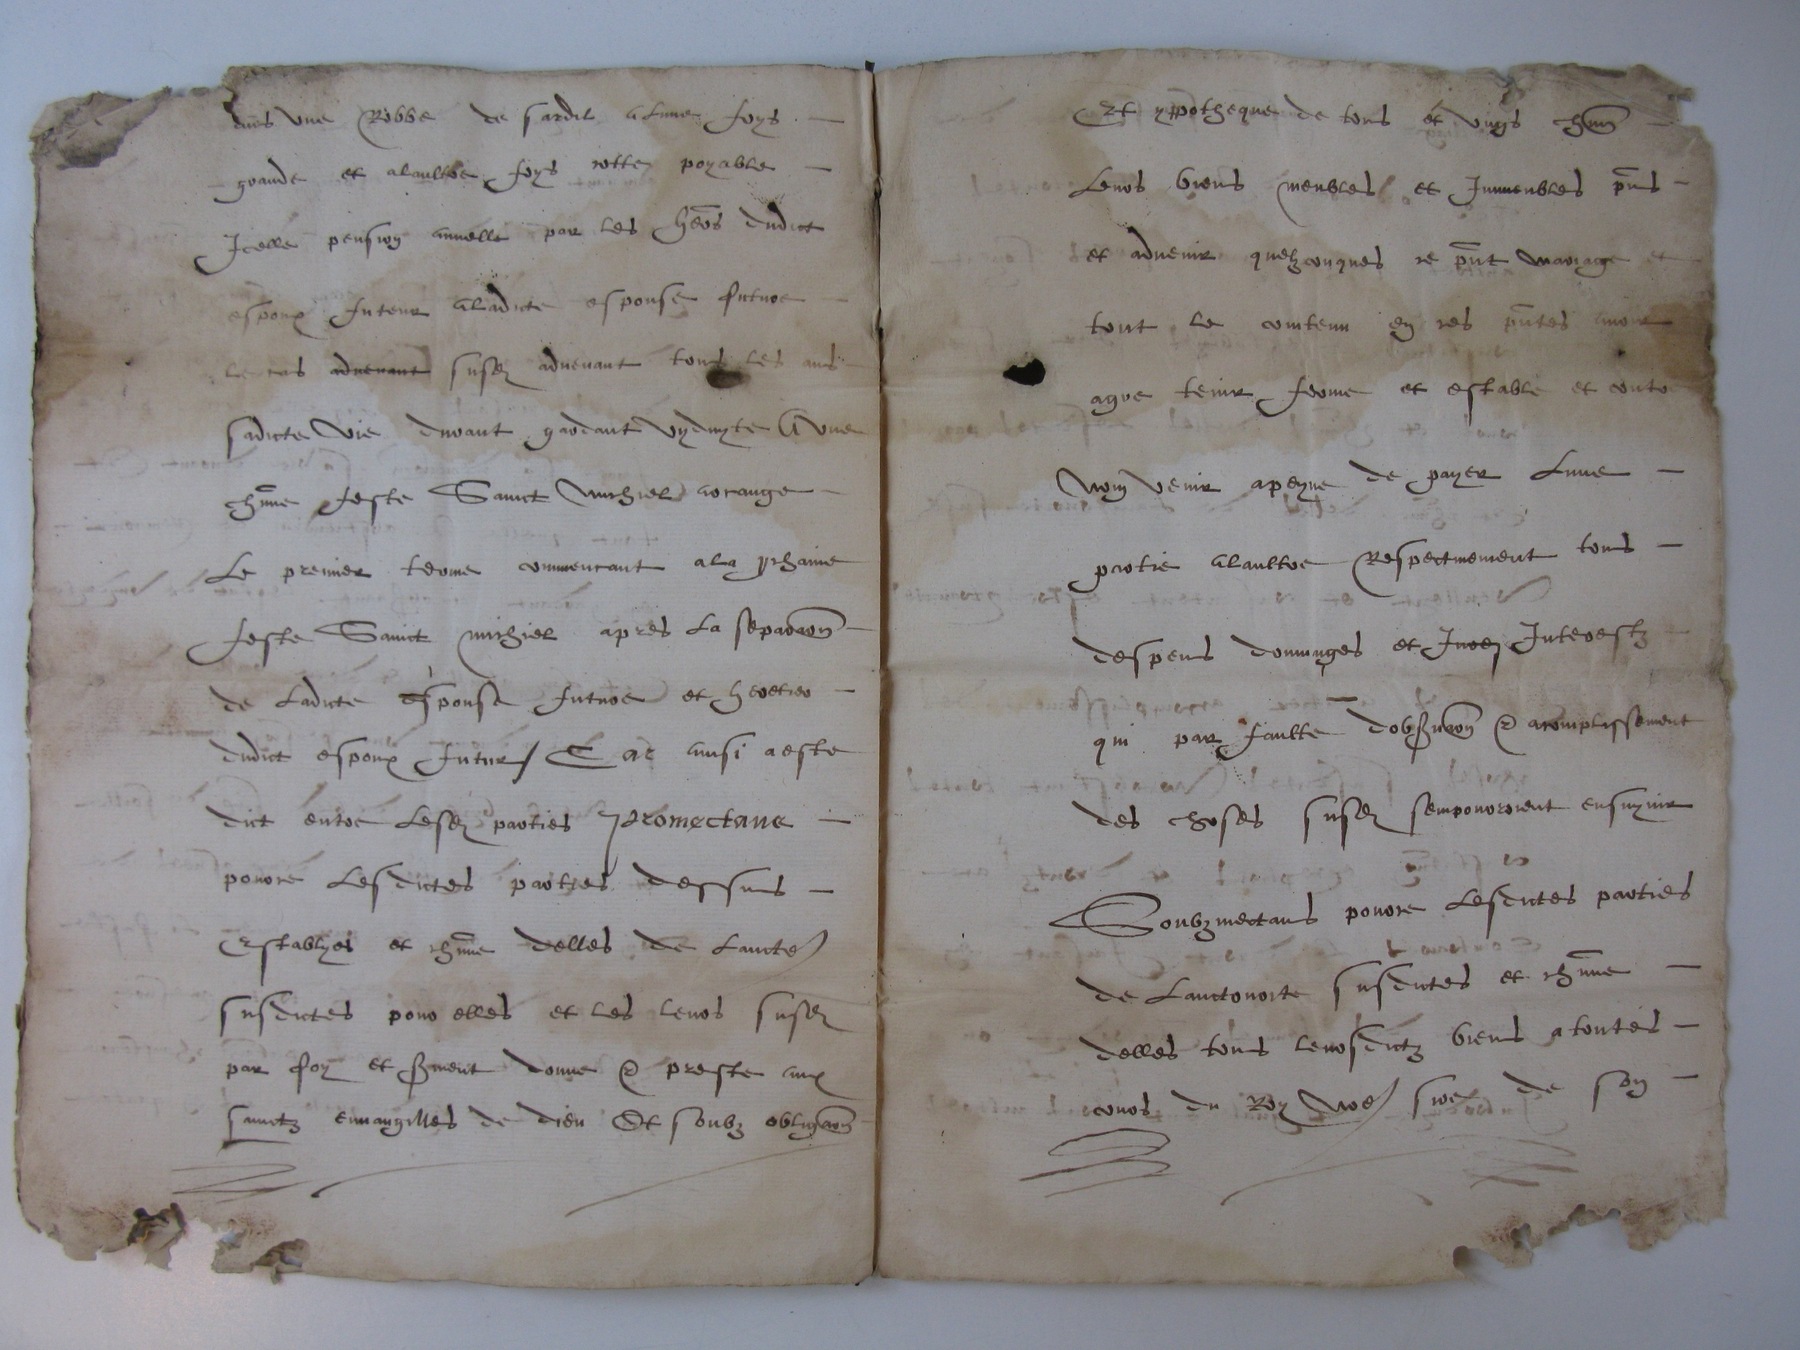 une Robbe de sardil a lune foys
grande et alaultre foys petite payable
Icelle pension annuelle par les heõs dudict
espoux futeur aladicte espouse future
le cas advenant susd advenant tous les ans
sadicte vie durant gardant vyduyte A une
chũne feste Sainct michiel
Le premier terme commencant ala prchaine
feste Sainct michiel apres La separaõn
de Ladicte espouse future et heretier
dudict espoux futur / Car ainsi a este
dict entre Lesd parties promectans
pource Lesdictes parties dessus
establyes et chũne delles de Laucte
susdictes pour elles et les leurs susd
par foy et sment donne & preste aux
sainctz euuangilles de dieu Et soubz obligaõn
Et yppotheque de tous et ungs chũn
Leurs biens meubles et Immeubles pñs
et advenir quelzconques ce pñt mariage et
tout le contenu en ces pñtes avoir
agre tenir ferme et estable et contre
non venir apeyne de payer Lune
partie alaultre Respectivement tous
despens dommages et Interestz
qui par faulte dobseruaõn & acomplissement
des choses susd sempourroient ensuyuir
Soubzmectans pource Lesdictes parties
de Lauctorite susdictes et chũne
delles tous leursdictz biens a toutes
cours du Roy nre sire de son